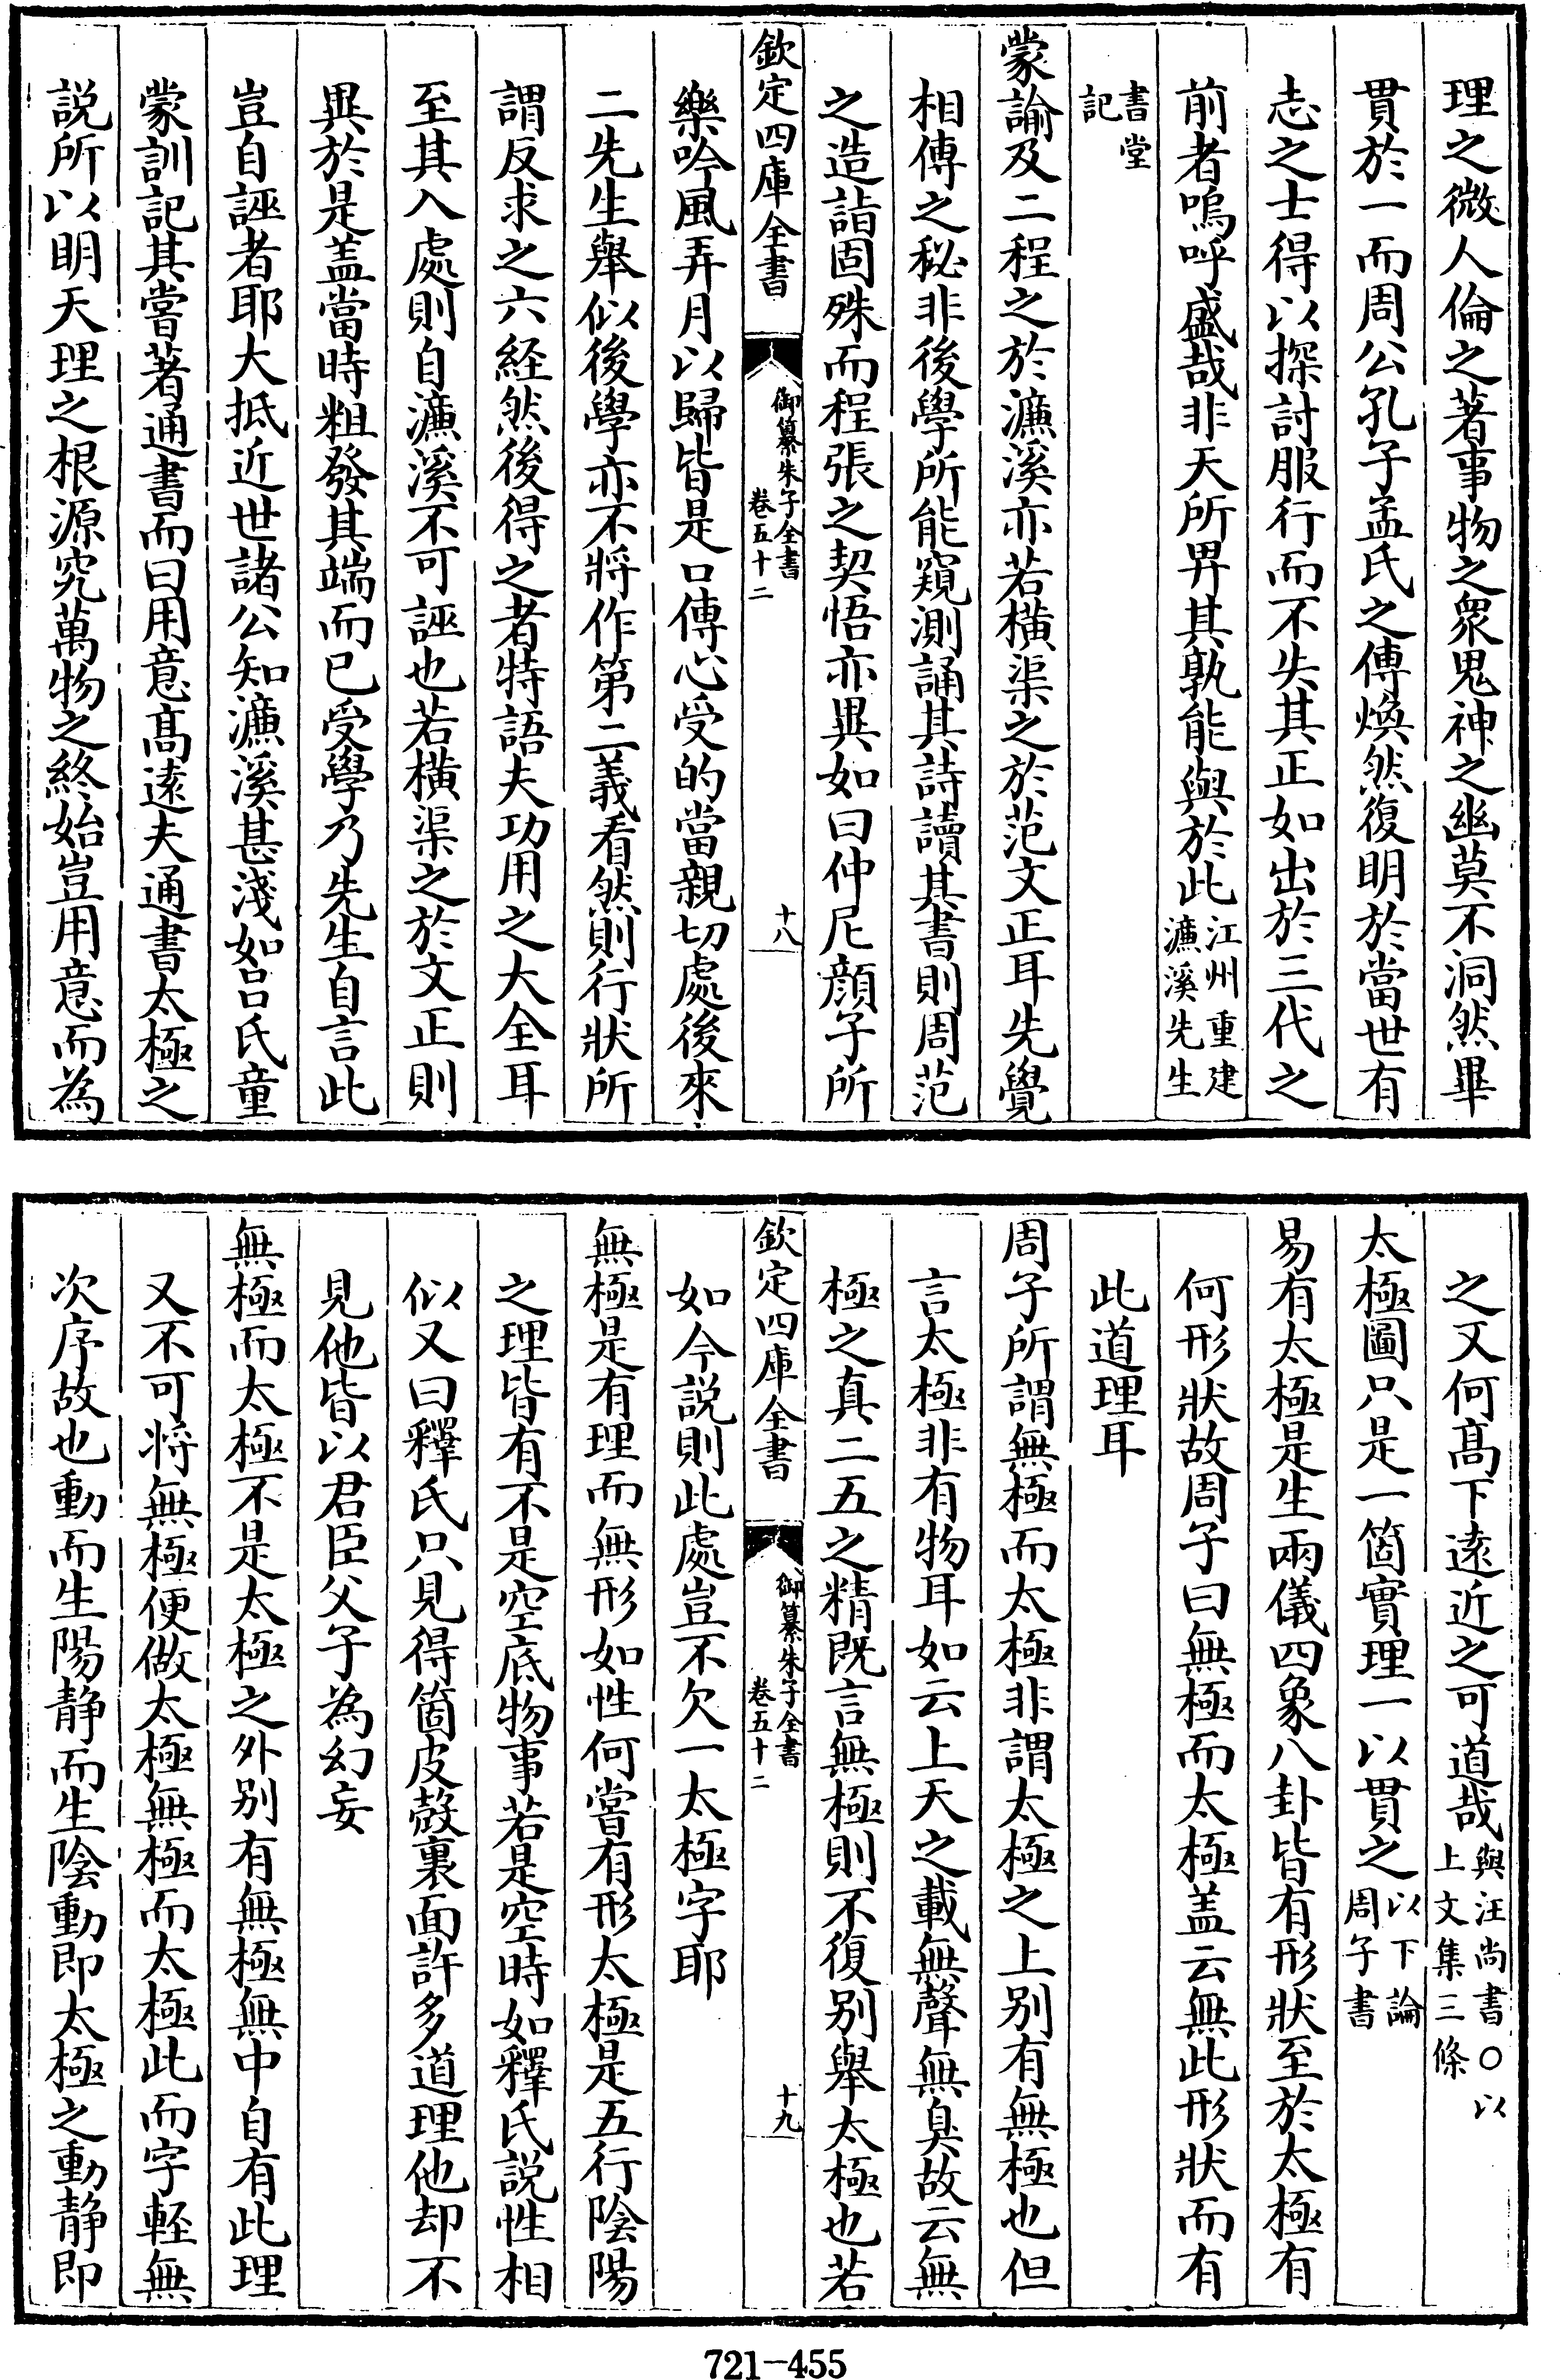 理之微人倫之著事物之衆鬼神之幽莫不洞然畢
貫於一而周公孔子孟氏之傳煥然復明於當世有
志之士得以探討服行而不失其正如出於三代之
前者嗚呼盛哉非天所畀其孰能與於此江州重建濓溪先生
書堂記
蒙諭及二程之於濓溪亦若橫渠之於范文正耳先覺
相傳之秘非後學所能窺測誦其詩讀其書則周范
之造詣固殊而程張之契悟亦異如曰仲尼顔子所
欽定四庫全書 御纂朱子全書卷五十二 十八
樂吟風弄月以歸皆是口傳心受的當親切處後來
二先生舉似後學亦不將作第二義看然則行狀所
謂反求之六經然後得之者特語夫功用之大全耳
至其入處則自濓溪不可誣也若橫渠之於文正則
異於是盖當時粗發其端而已受學乃先生自言此
豈自誣者耶大抵近世諸公知濓溪甚淺如吕氏童
蒙訓記其嘗著通書而曰用意髙逺夫通書太極之
説所以明天理之根源究萬物之終始豈用意而為
之又何髙下逺近之可道哉與汪尚書○以上文集三條
太極圖只是一箇實理一以貫之以下論周子書
易有太極是生兩儀四象八卦皆有形狀至於太極有
何形狀故周子曰無極而太極盖云無此形狀而有
此道理耳
周子所謂無極而太極非謂太極之上别有無極也但
言太極非有物耳如云上天之載無聲無臭故云無
極之真二五之精既言無極則不復别舉太極也若
欽定四庫全書 御纂朱子全書卷五十二 十九
如今説則此處豈不欠一太極字耶
無極是有理而無形如性何嘗有形太極是五行陰陽
之理皆有不是空底物事若是空時如釋氏説性相
似又曰釋氏只見得箇皮殻裏面許多道理他却不
見他皆以君臣父子為幻妄
無極而太極不是太極之外别有無極無中自有此理
又不可将無極便做太極無極而太極此而字輕無
次序故也動而生陽静而生陰動即太極之動静即
721-455